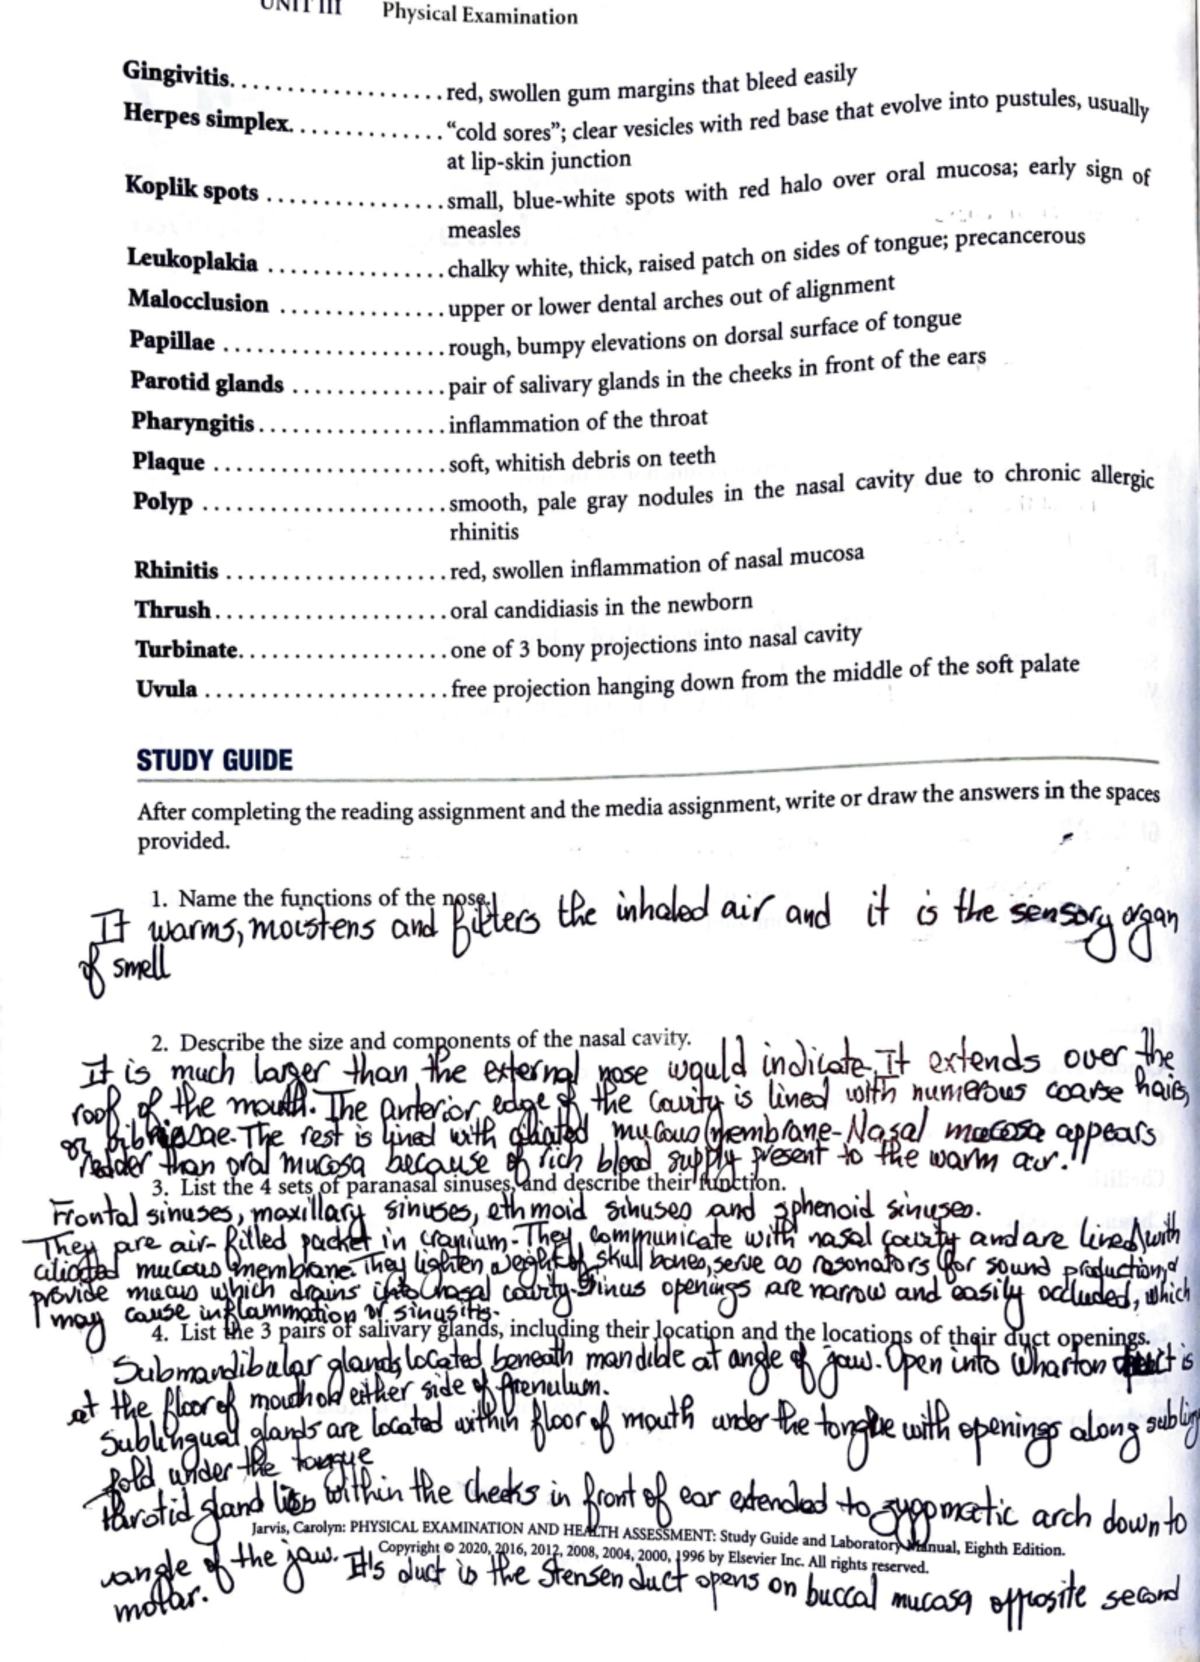 UNIT III Physical Examination
Gingivitis. . . . . . . . . . . . . . . . . . . red, swollen gum margins that bleed easily
Herpes simplex. . . . . . . . . . . . . . “cold sores”; clear vesicles with red base that evolve into pustules, usually
at lip-skin junction
Koplik spots . . . . . . . . . . . . . . . . small, blue-white spots with red halo over oral mucosa; early sign of
measles
Leukoplakia . . . . . . . . . . . . . . . . chalky white, thick, raised patch on sides of tongue; precancerous
Malocclusion . . . . . . . . . . . . . . . upper or lower dental arches out of alignment
Papillae . . . . . . . . . . . . . . . . . . . . rough, bumpy elevations on dorsal surface of tongue
Parotid glands . . . . . . . . . . . . . . pair of salivary glands in the cheeks in front of the ears
Pharyngitis . . . . . . . . . . . . . . . . . inflammation of the throat
Plaque . . . . . . . . . . . . . . . . . . . . . soft, whitish debris on teeth
Polyp . . . . . . . . . . . . . . . . . . . . . . smooth, pale gray nodules in the nasal cavity due to chronic allergic
rhinitis
Rhinitis . . . . . . . . . . . . . . . . . . . . red, swollen inflammation of nasal mucosa
Thrush . . . . . . . . . . . . . . . . . . . . . oral candidiasis in the newborn
Turbinate. . . . . . . . . . . . . . . . . . . one of 3 bony projections into nasal cavity
Uvula . . . . . . . . . . . . . . . . . . . . . . free projection hanging down from the middle of the soft palate
STUDY GUIDE
After completing the reading assignment and the media assignment, write or draw the answers in the spaces
provided.
1. Name the functions of the nose.
It warms, moistens and filters the inhaled air and it is the sensory organ
of smell
2. Describe the size and components of the nasal cavity.
It is much larger than the external nose would indicate. It extends over the
roof of the mouth. The anterior edge of the cavity is lined with numerous coarse hairs,
or The rest is lined with ciliated mucous membrane- Nasal mucosa appears
redder than oral mucosa because of rich blood supply present to the warm air.
3. List the 4 sets of paranasal sinuses, and describe their function.
Frontal sinuses, maxillary sinuses, ethmoid sinuses and sphenoid sinuses.
They are air-filled pocket in cranium- They communicate with nasal cavity and are lined with
ciliated mucous membrane. They lighten weight of skull bones, serve as resonators for sound production, d
provide mucus which drains into nasal cavity. Sinus openings are narrow and easily occluded, which
may cause inflammation or sinusitis.
4. List the 3 pairs of salivary glands, including their location and the locations of their duct openings.
Submandibular glands located beneath mandible at angle of jaw. Open into Wharton is
at the floor of mouth on either side of frenulum.
Sublingual glands are located within floor of mouth under the tongue with openings along subling
fold under the tongue
Parotid gland lies within the cheeks in front of ear extended to zygomatic arch down to
Jarvis, Carolyn: PHYSICAL EXAMINATION AND HEALTH ASSESSMENT: Study Guide and Laboratory Manual, Eighth Edition.
Copyright © 2020, 2016, 2012, 2008, 2004, 2000, 1996 by Elsevier Inc. All rights reserved.
angle of the jaw. It's duct is the Stensen duct opens on buccal mucosa opposite second
molar.